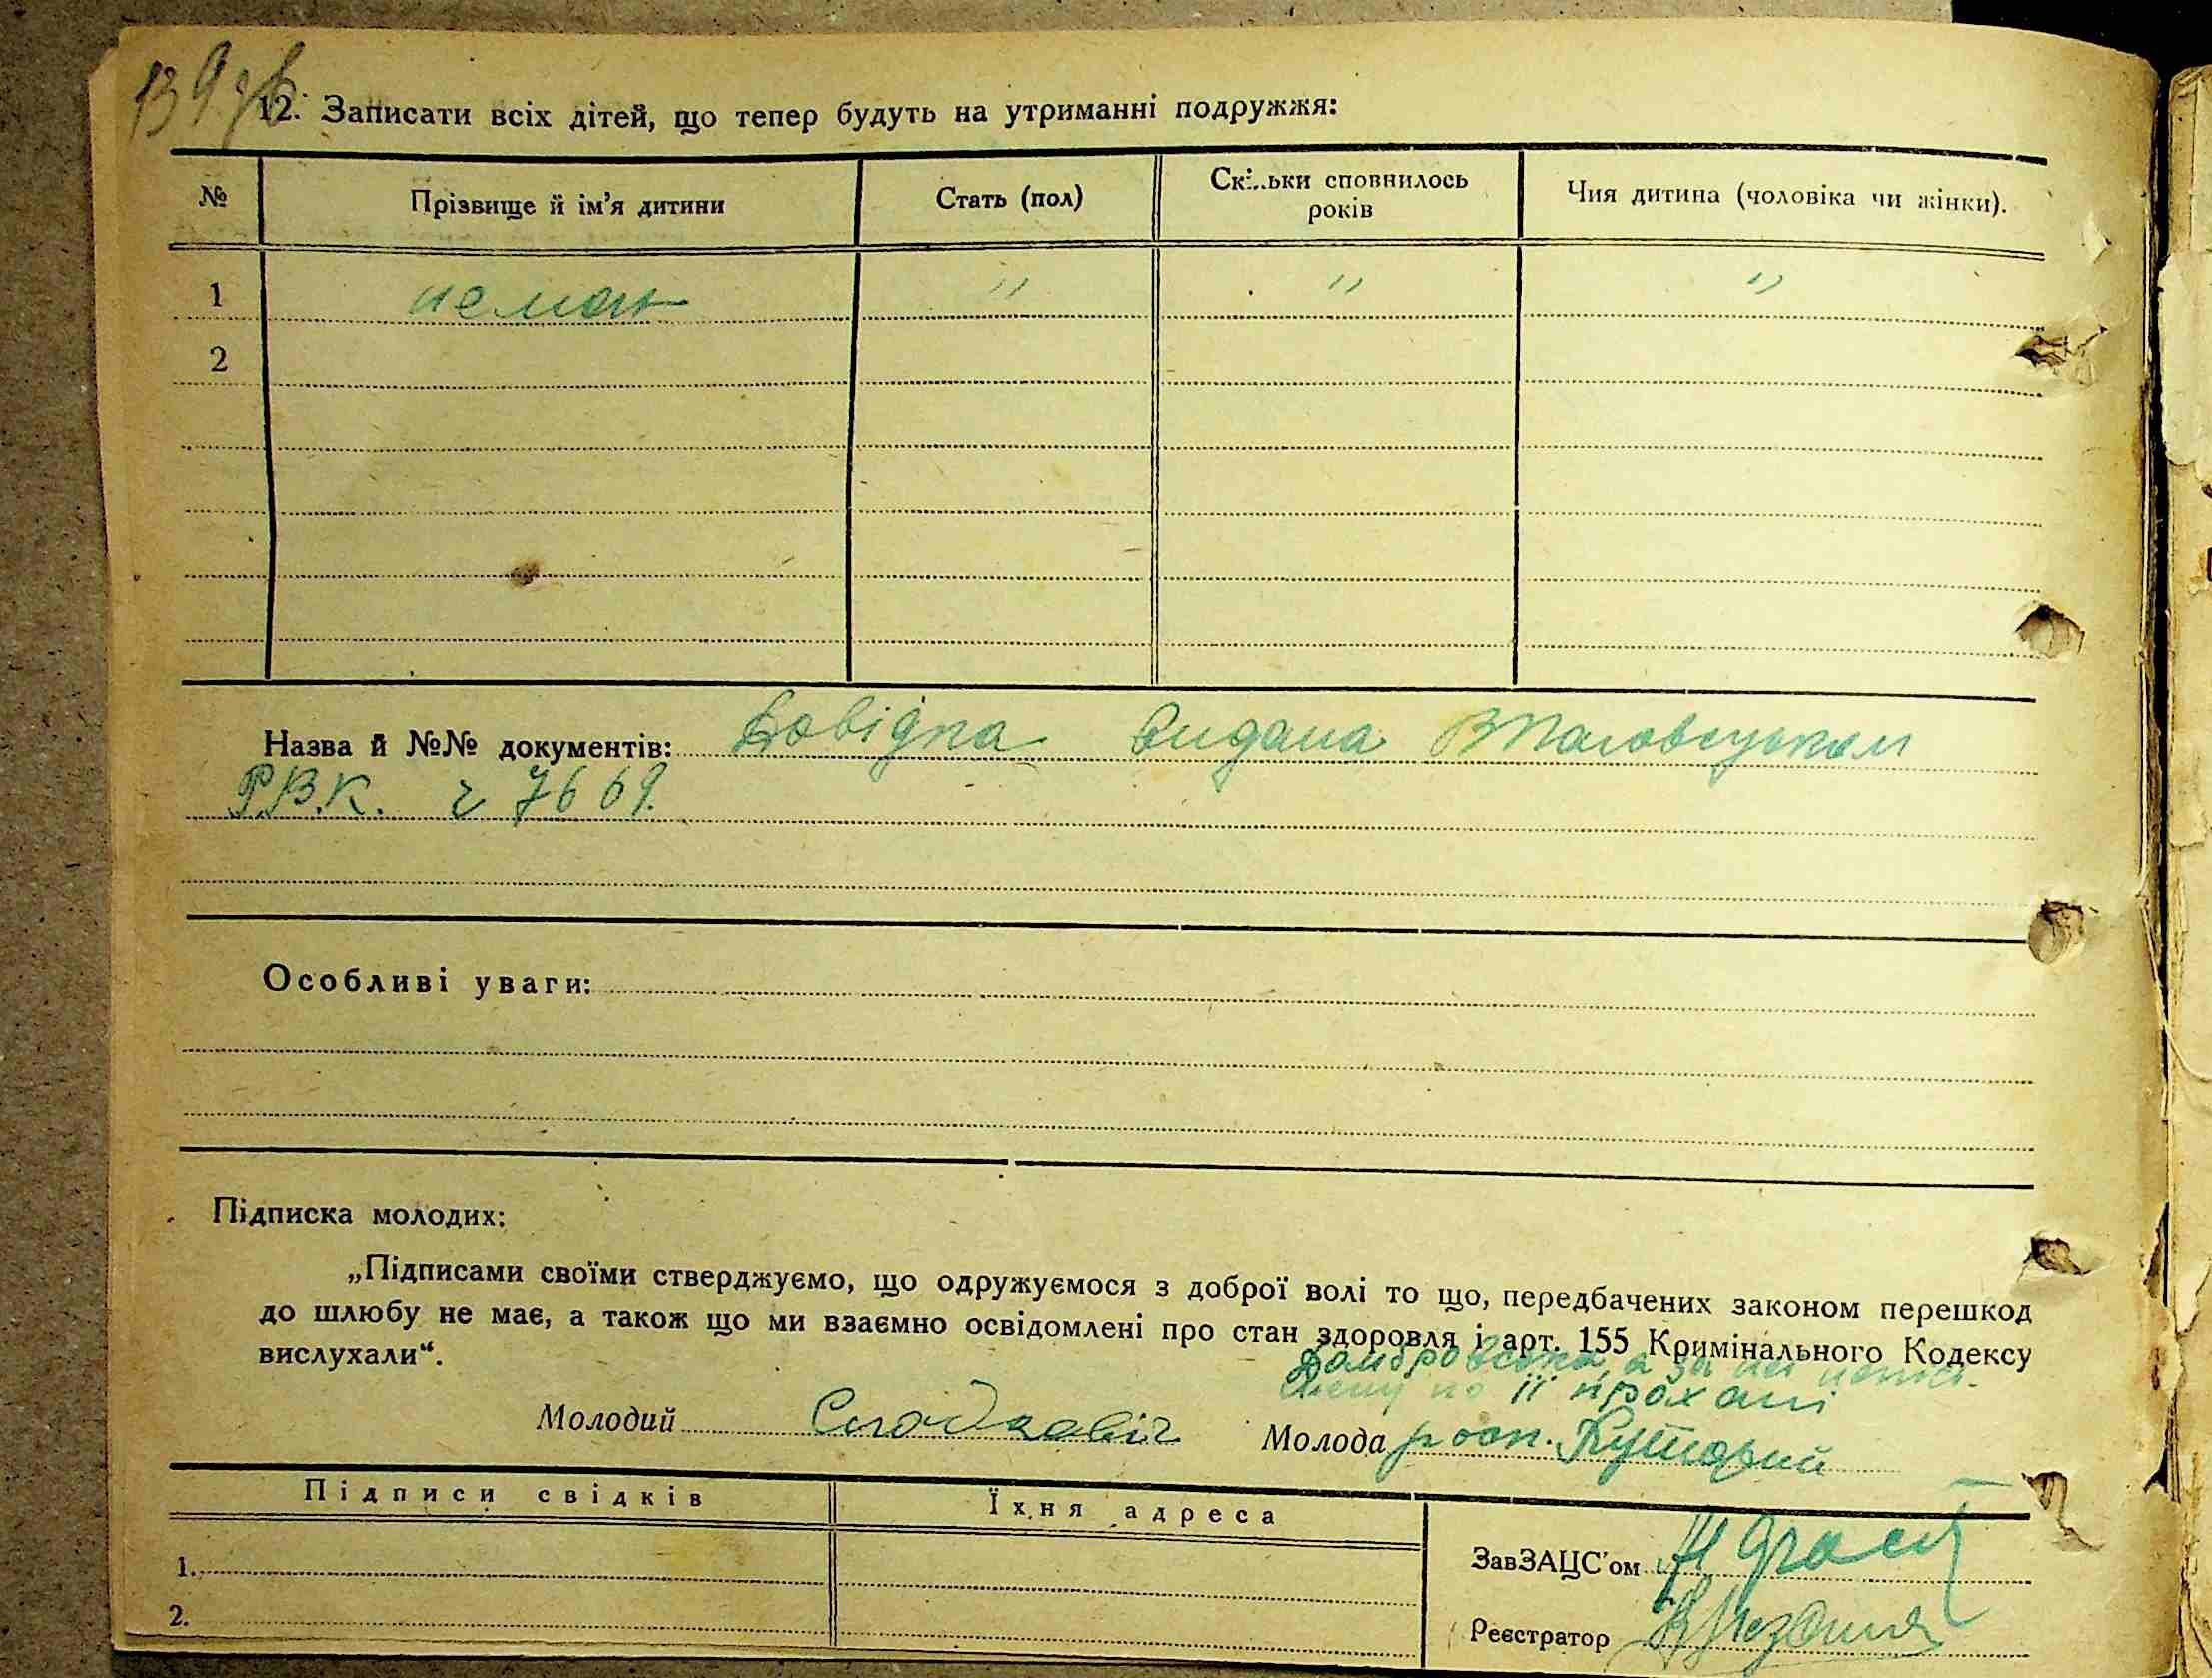 139 зв
12. Записати всіх дітей, що тепер будуть на утриманні подружжя:
№ Прізвище й ім’я дитини Стать (пол) Скільки сповнилось років Чия дитина (чоловіка чи жінки).
1 немає " " "
2
Назва й №№ документів: Довідка видана
Р.В.К. ч 7669.
Особливі уваги:
Підписка молодих:
„Підписами своїми стверджуємо, що одружуємося з доброї волі то що, передбачених законом перешкод
до шлюбу не має, а також що ми взаємно освідомлені про стан здоровля і арт. 155 Кримінального Кодексу
вислухали“.
Домбровська, а за неї
по її прохані
Молодий Молода росп.
Підписи свідків Їхня адреса
1. ЗавЗАЦС’ом
2. Реєстратор